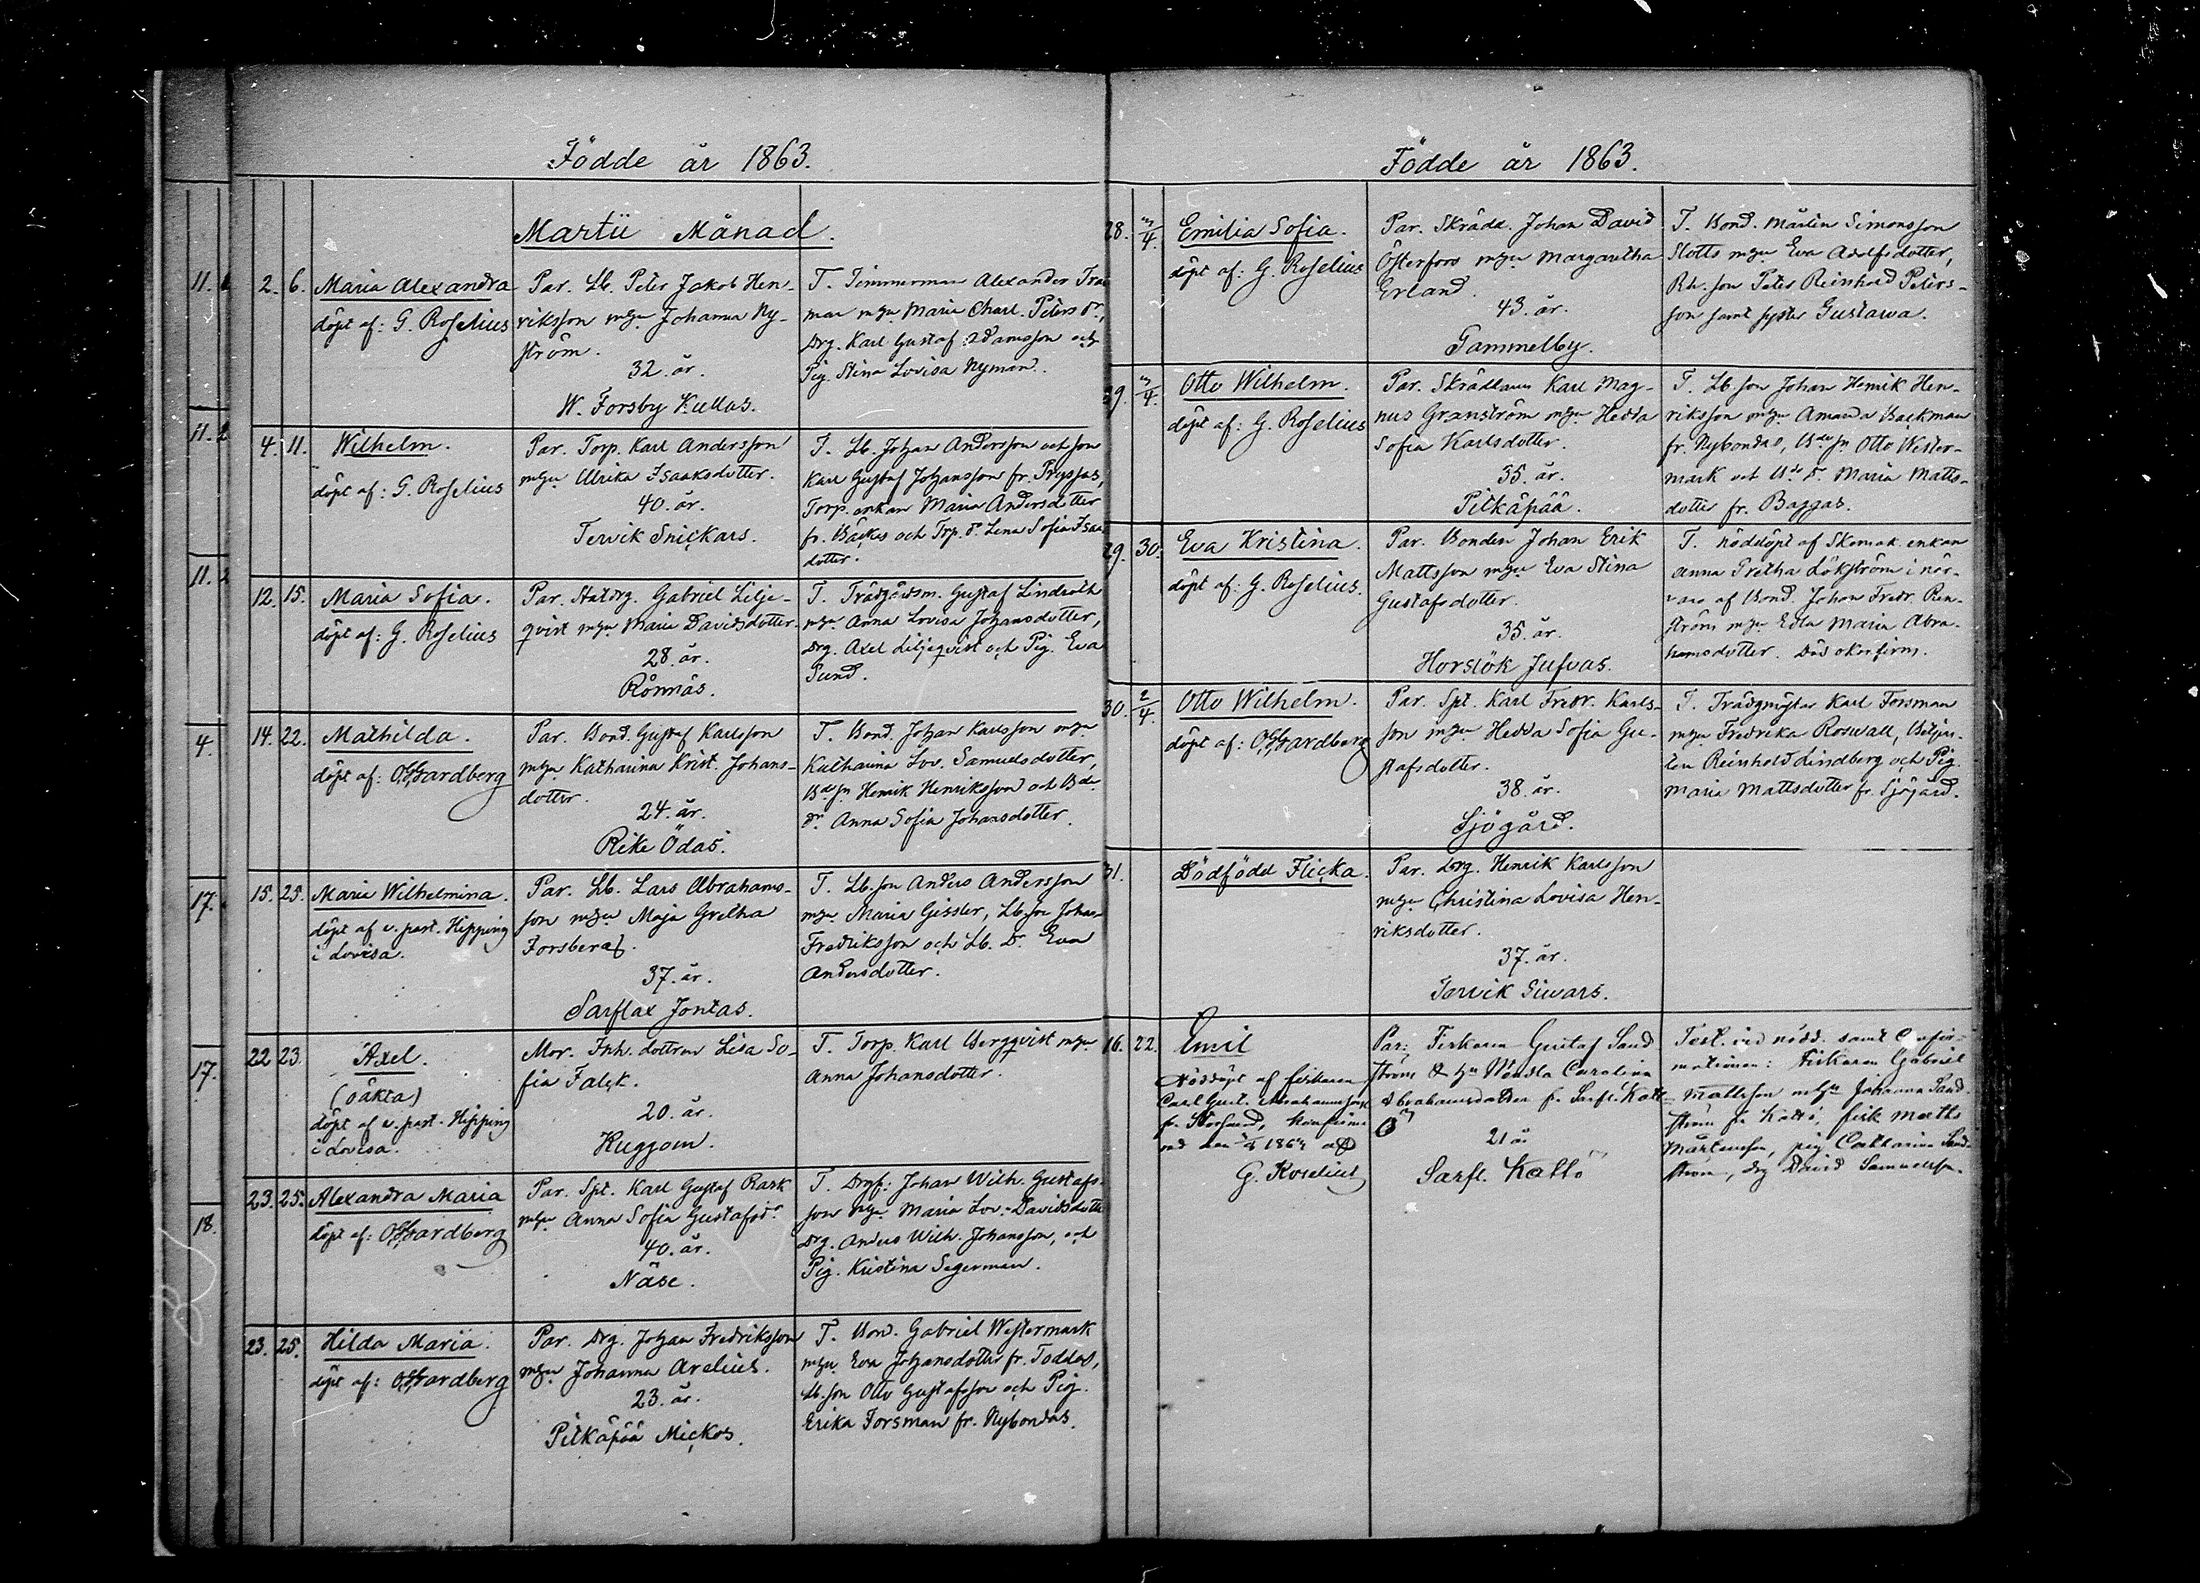 Födde år 1863.
Martii Månad.
11.
2. 6. Maria Alexandra
döpt af: G. Roselius
Par. Lb. Peter Jakob Hen-
riksson m hu Johanna Ny-
ström.
32. år.
W. Forsby Kullas.
T. Timmerman Alexander
man m hu Maria Charl. Peters dr,
Drg. Karl Gustaf Adamsson och
Pig. Stina Lovisa Nyman.
11. 2
4. 11. Wilhelm.
döpt af: G. Roselius
Par. Torp. Karl Andersson
m hu Ulrika Isaaksdotter.
40. år.
Tervik Snickars.
T. Lb. Johan Andersson och son
Karl Gustaf Johansson fr. Prygjas,
Torp. enkan Maria Andersdotter
fr. Bäckas och Trp. dr. Lena Sofia Isaa
dotter.
11. 2
12. 15. Maria Sofia.
döpt af: G. Roselius
Par. Statdrg. Gabriel Lilje-
qvist m hu Maria Davidsdotter.
28. år.
Rönnäs.
T. Trädgårdsm. Gustaf Linderoth
m hu Anna Lovisa Johansdotter,
Drg. Axel Liljeqvist och Pig. Eva
Sund.
4.
14. 22. Mathilda.
döpt af: O. G. Gardberg
Par. Bond. Gustaf Karlsson
m hu Katharina Krist. Johans-
dotter.
24. år.
Rike Ödas.
T. Bond. Johan Karlsson m hu
Katharina Lov. Samuelsdotter,
Bde sn Henrik Henriksson och Bde
dr Anna Sofia Johansdotter.
17.
15. 25. Maria Wilhelmina.
döpt af v. past. Hipping
i Lovisa.
Par. Lb. Lars Abrahams-
son m hu Maja Gretha
Forsberg.
37. år.
Sarflax Jontas.
T. Lb. son Anders Andersson
m hu Maria Gissler, Lb. son Johan
Fredriksson och Lb. Dr. Eva
Andersdotter.
17.
22 23. Axel.
(oäkta)
döpt af v. past. Hipping
i Lovisa.
Mor. Inh. dottren Lisa So-
fia Falck.
20. år.
Kuggom.
T. Torp. Karl Bergqvist m hu
Anna Johansdotter.
18.
23. 25. Alexandra Maria
döpt af: O. G. Gardberg
Par. Spt. Karl Gustaf Rask
m hu Anna Sofia Gustafsdr
40. år.
Näse.
T. Drgf: Johan Wilh. Gustafs-
son m hu Maria Lov. Davidsdotter
Drg. Anders Wilh. Johansson, och
Pig. Kristina Segerman.
23. 25. Hilda Maria.
döpt af: O. G. Gardberg
Par. Drg. Johan Fredriksson
m hu Johanna Arelius.
23. år.
Pitkäpää Mickos.
T. Bond. Gabriel Westermark
m hu Eva Johansdotter fr. Toddas,
Lb. son Otto Gustafsson och Pig.
Erika Forsman fr. Nybondas.
Födde år 1863.
28. /4. Emilia Sofia.
döpt af: G. Roselius
Par. Skrädd. Johan David
Österfors m hu Margaretha
Erland.
43. år.
Gammelby.
T. Bond. Mårten Simonsson
Slotts m hu Eva Adolfsdotter,
Rh. son Peter Reinhold Peters-
son samt syster Gustava.
29. /4. Otto Wilhelm.
döpt af: G. Roselius
Par. Skräddaren Karl Mag-
nus Granström m hu Hedda
Sofia Karlsdotter.
35. år.
Pitkäpää.
T. Lb. son Johan Henrik Hen-
riksson m hu Amanda Backman
fr. Nybondas, Bde sn Otto Wester-
mark och Bde dr. Maria Matts-
dotter fr. Baggas.
29. 30. Eva Kristina.
döpt af: G. Roselius.
Par. Bonden Johan Erik
Mattsson m hu Eva Stina
Gustafsdotter.
35. år.
Horslök Jufvas.
T. Nöddöpt af Skomak. enkan
Anna Gretha Lökström i när-
varo af Bond. Johan Fredr. Ren-
ström m hu Edla Maria Abra-
hamsdotter. Död okonfirm.
30. 2/4. Otto Wilhelm.
döpt af: O. G. Gardberg
Par. Spt. Karl Fredr. Karls-
son m hu Hedda Sofia Gu-
stafsdotter.
38. år.
Sjögård.
T. Trädgmästar Karl Forsman
m hu Fredrika Roswall, Betjen-
ten Reinhold Lindberg och Pig.
Maria Mattsdotter fr. Sjögård.
31. Dödfödd Flicka.
Par. Drg. Henrik Karlsson
m hu Christina Lovisa Hen-
riksdotter.
37. år.
Tervik Siwars.
16. 22. Emil
Nöddöpt af fiskaren
Carl Gust. Abrahamsson
fr. Storsund, konfirme-
rad den 1864 af
G. Roselius
Par: Fiskaren Gustaf Sand
ström & hu Wendla Carolina
Abrahamsdotter fr. Sarfl. Kalt-
ö
21 år
Sarfl. Kaltö
Test. vid nödd. samt Confir-
mationen: Fiskaren Gabriel
Mattsson m hu Johanna Sand
ström fr. Kaltö, fisk. Matts
Mårtensson, pig Catharina Sand-
ström, drg David Samuelsson.